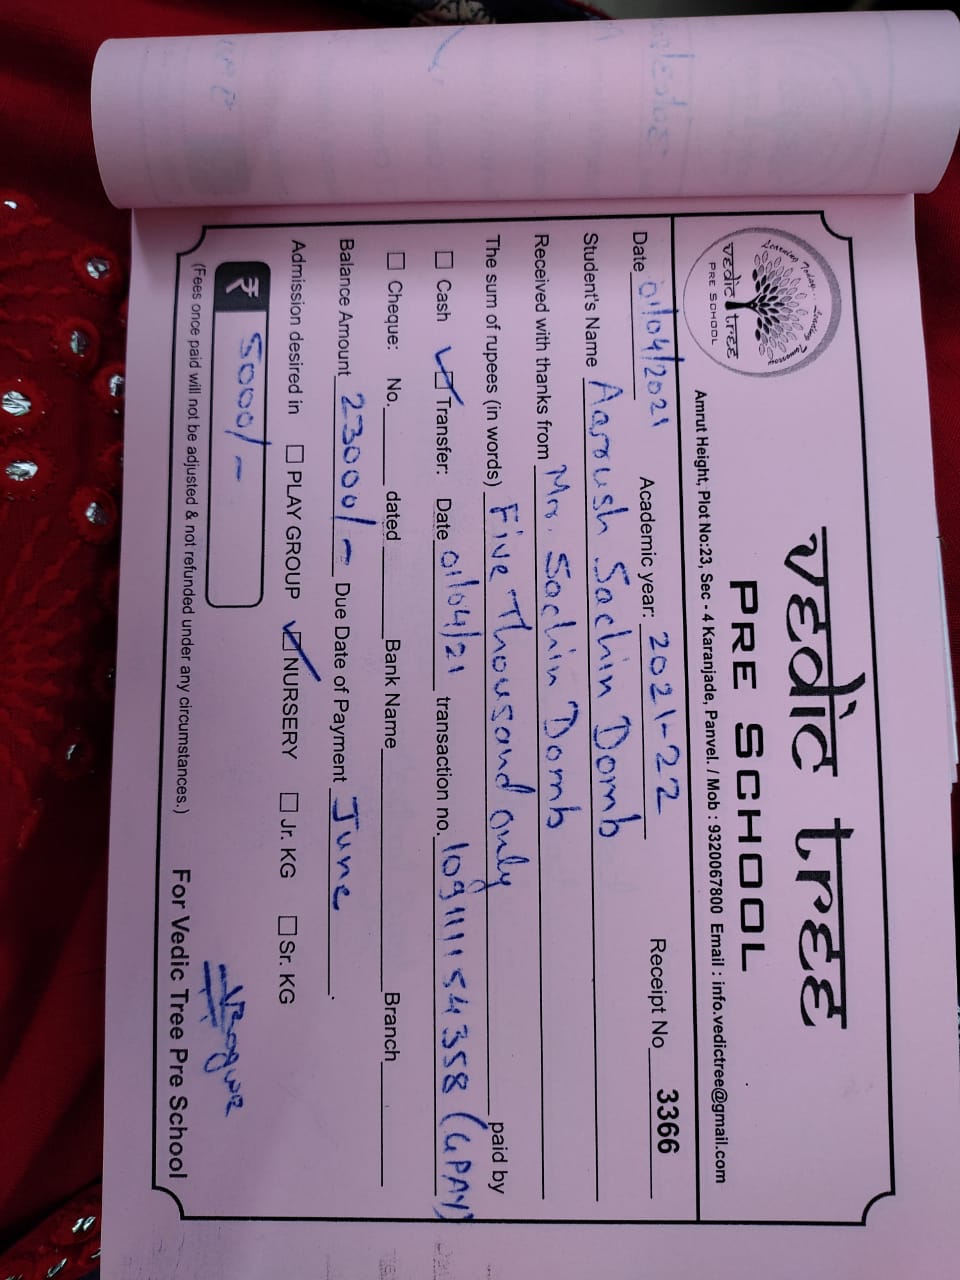 vedic tree
PRE SCHOOL
Learning Today... Leading Tomorrow
vedic tree
PRE SCHOOL
Amrut Height, Plot No:23, Sec - 4 Karanjade, Panvel. / Mob : 9320067800 Email : info.vedictree@gmail.com
Date 01/04/2021 Academic year: 2021-22 Receipt No 3366
Student's Name Aaroush Sachin Domb
Received with thanks from Mr. Sachin Domb
The sum of rupees (in words) Five Thousand only paid by
☐ Cash ☑ Transfer: Date 01/04/21 transaction no. 109111154358 (GPAY)
☐ Cheque: No. dated Bank Name Branch
Balance Amount 23000/- Due Date of Payment June.
Admission desired in ☐ PLAY GROUP ☑ NURSERY ☐ Jr. KG ☐ Sr. KG
₹ 5000/-
(Fees once paid will not be adjusted & not refunded under any circumstances.) For Vedic Tree Pre School